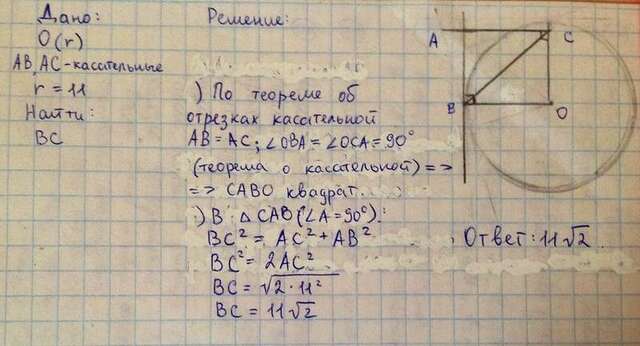 Дано:
O(r)
AB, AC - касательные
r = 11
Найти:
BC
Решение:
) По теореме об
отрезках касательной
AB = AC; ∠OBA = ∠OCA = 90°
(теорема о касательной) =>
=> CABO квадрат.
) В △CAB (∠A = 90°):
BC² = AC² + AB²
BC² = 2AC²
BC = √(2·11²)
BC = 11√2
A
C
B
O
Ответ: 11√2.